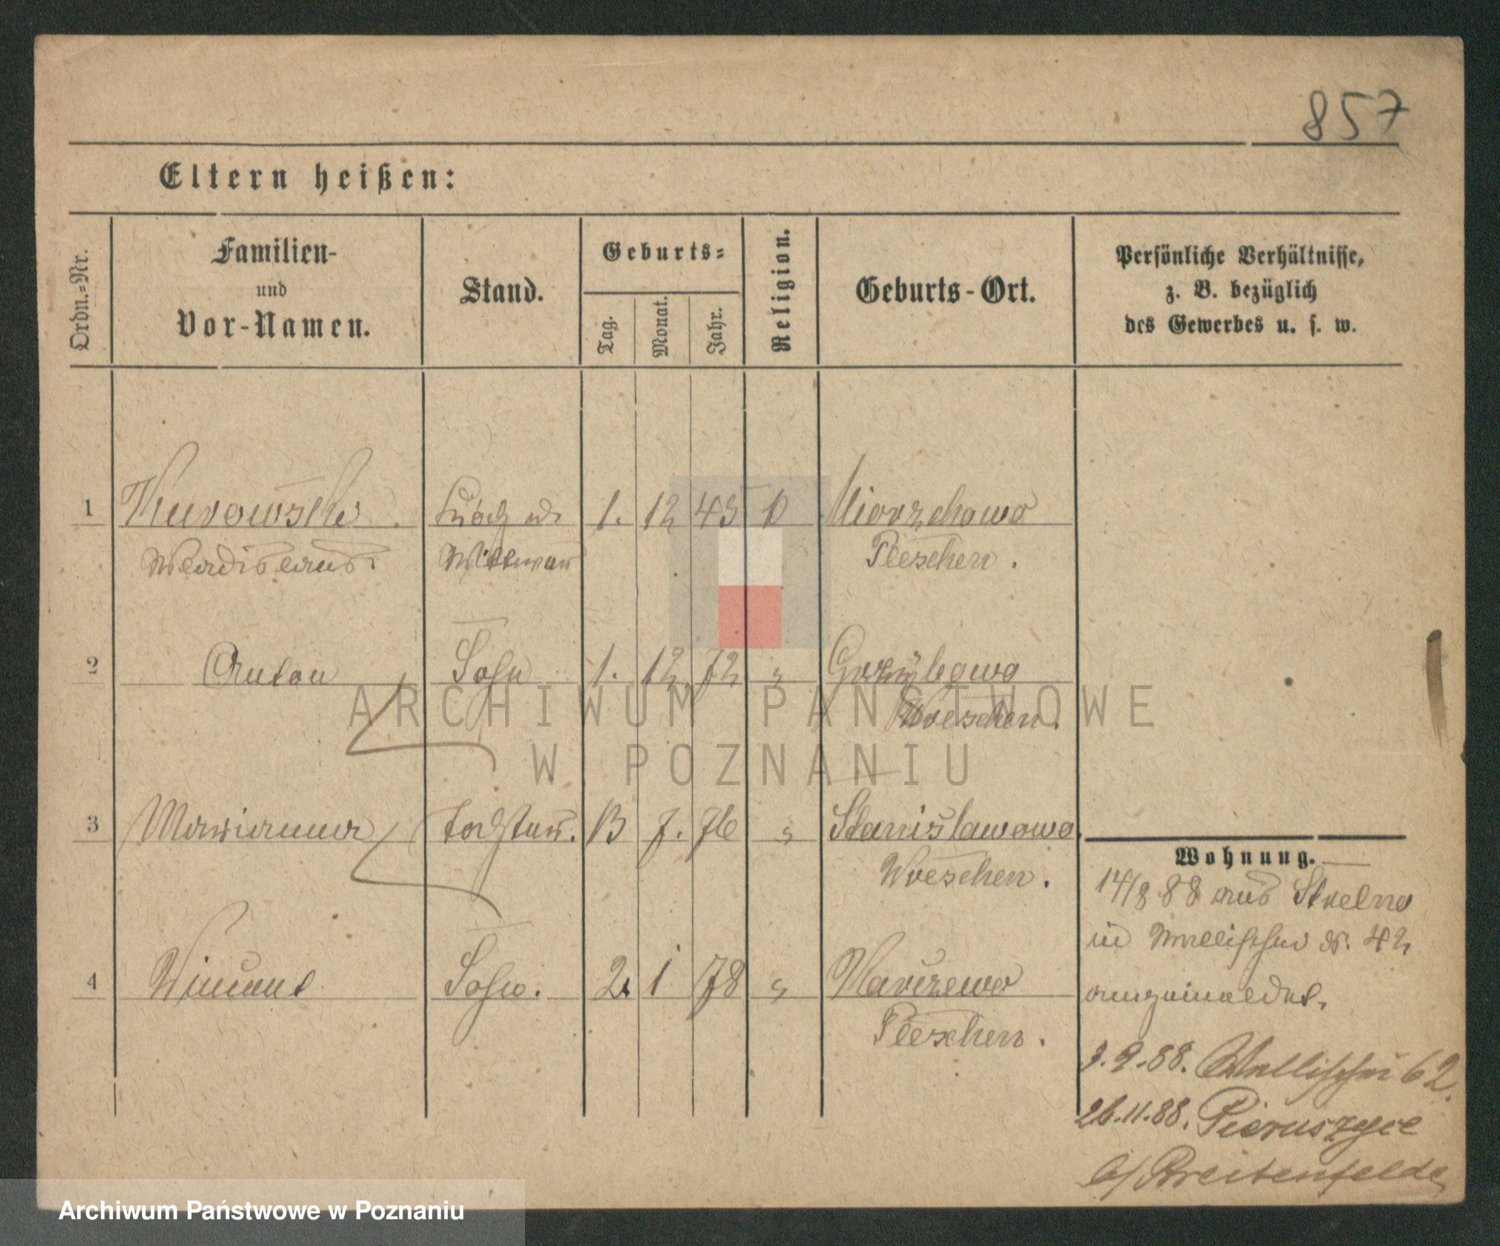 857
Eltern heißen:
Ordn.-Nr.
Familien-
und
Vor-Namen.
Stand.
Geburts-
Tag.
Monat.
Jahr.
Religion.
Geburts-Ort.
Persönliche Verhältnisse,
z. B. bezüglich
des Gewerbes u. s. w.
1 Kurowski 1. 12 45
Wladislaus Pleschen.
2 Anton Sohn 1. 12 72 "
Wreschen.
3 Marianna Tochter. 13 7. 76 " Stanisławowo
Wreschen.
4 Vincent Sohn. 2 1 78 "
Pleschen.
Wohnung.
14/8 88 aus Strelno
in Wallischei 42
angemeldet.
3.9.88. Wallischei 62.
26.11.88. Pieruszyce
b/ Breitenfelde
ARCHIWUM PAŃSTWOWE
W POZNANIU
Archiwum Państwowe w Poznaniu